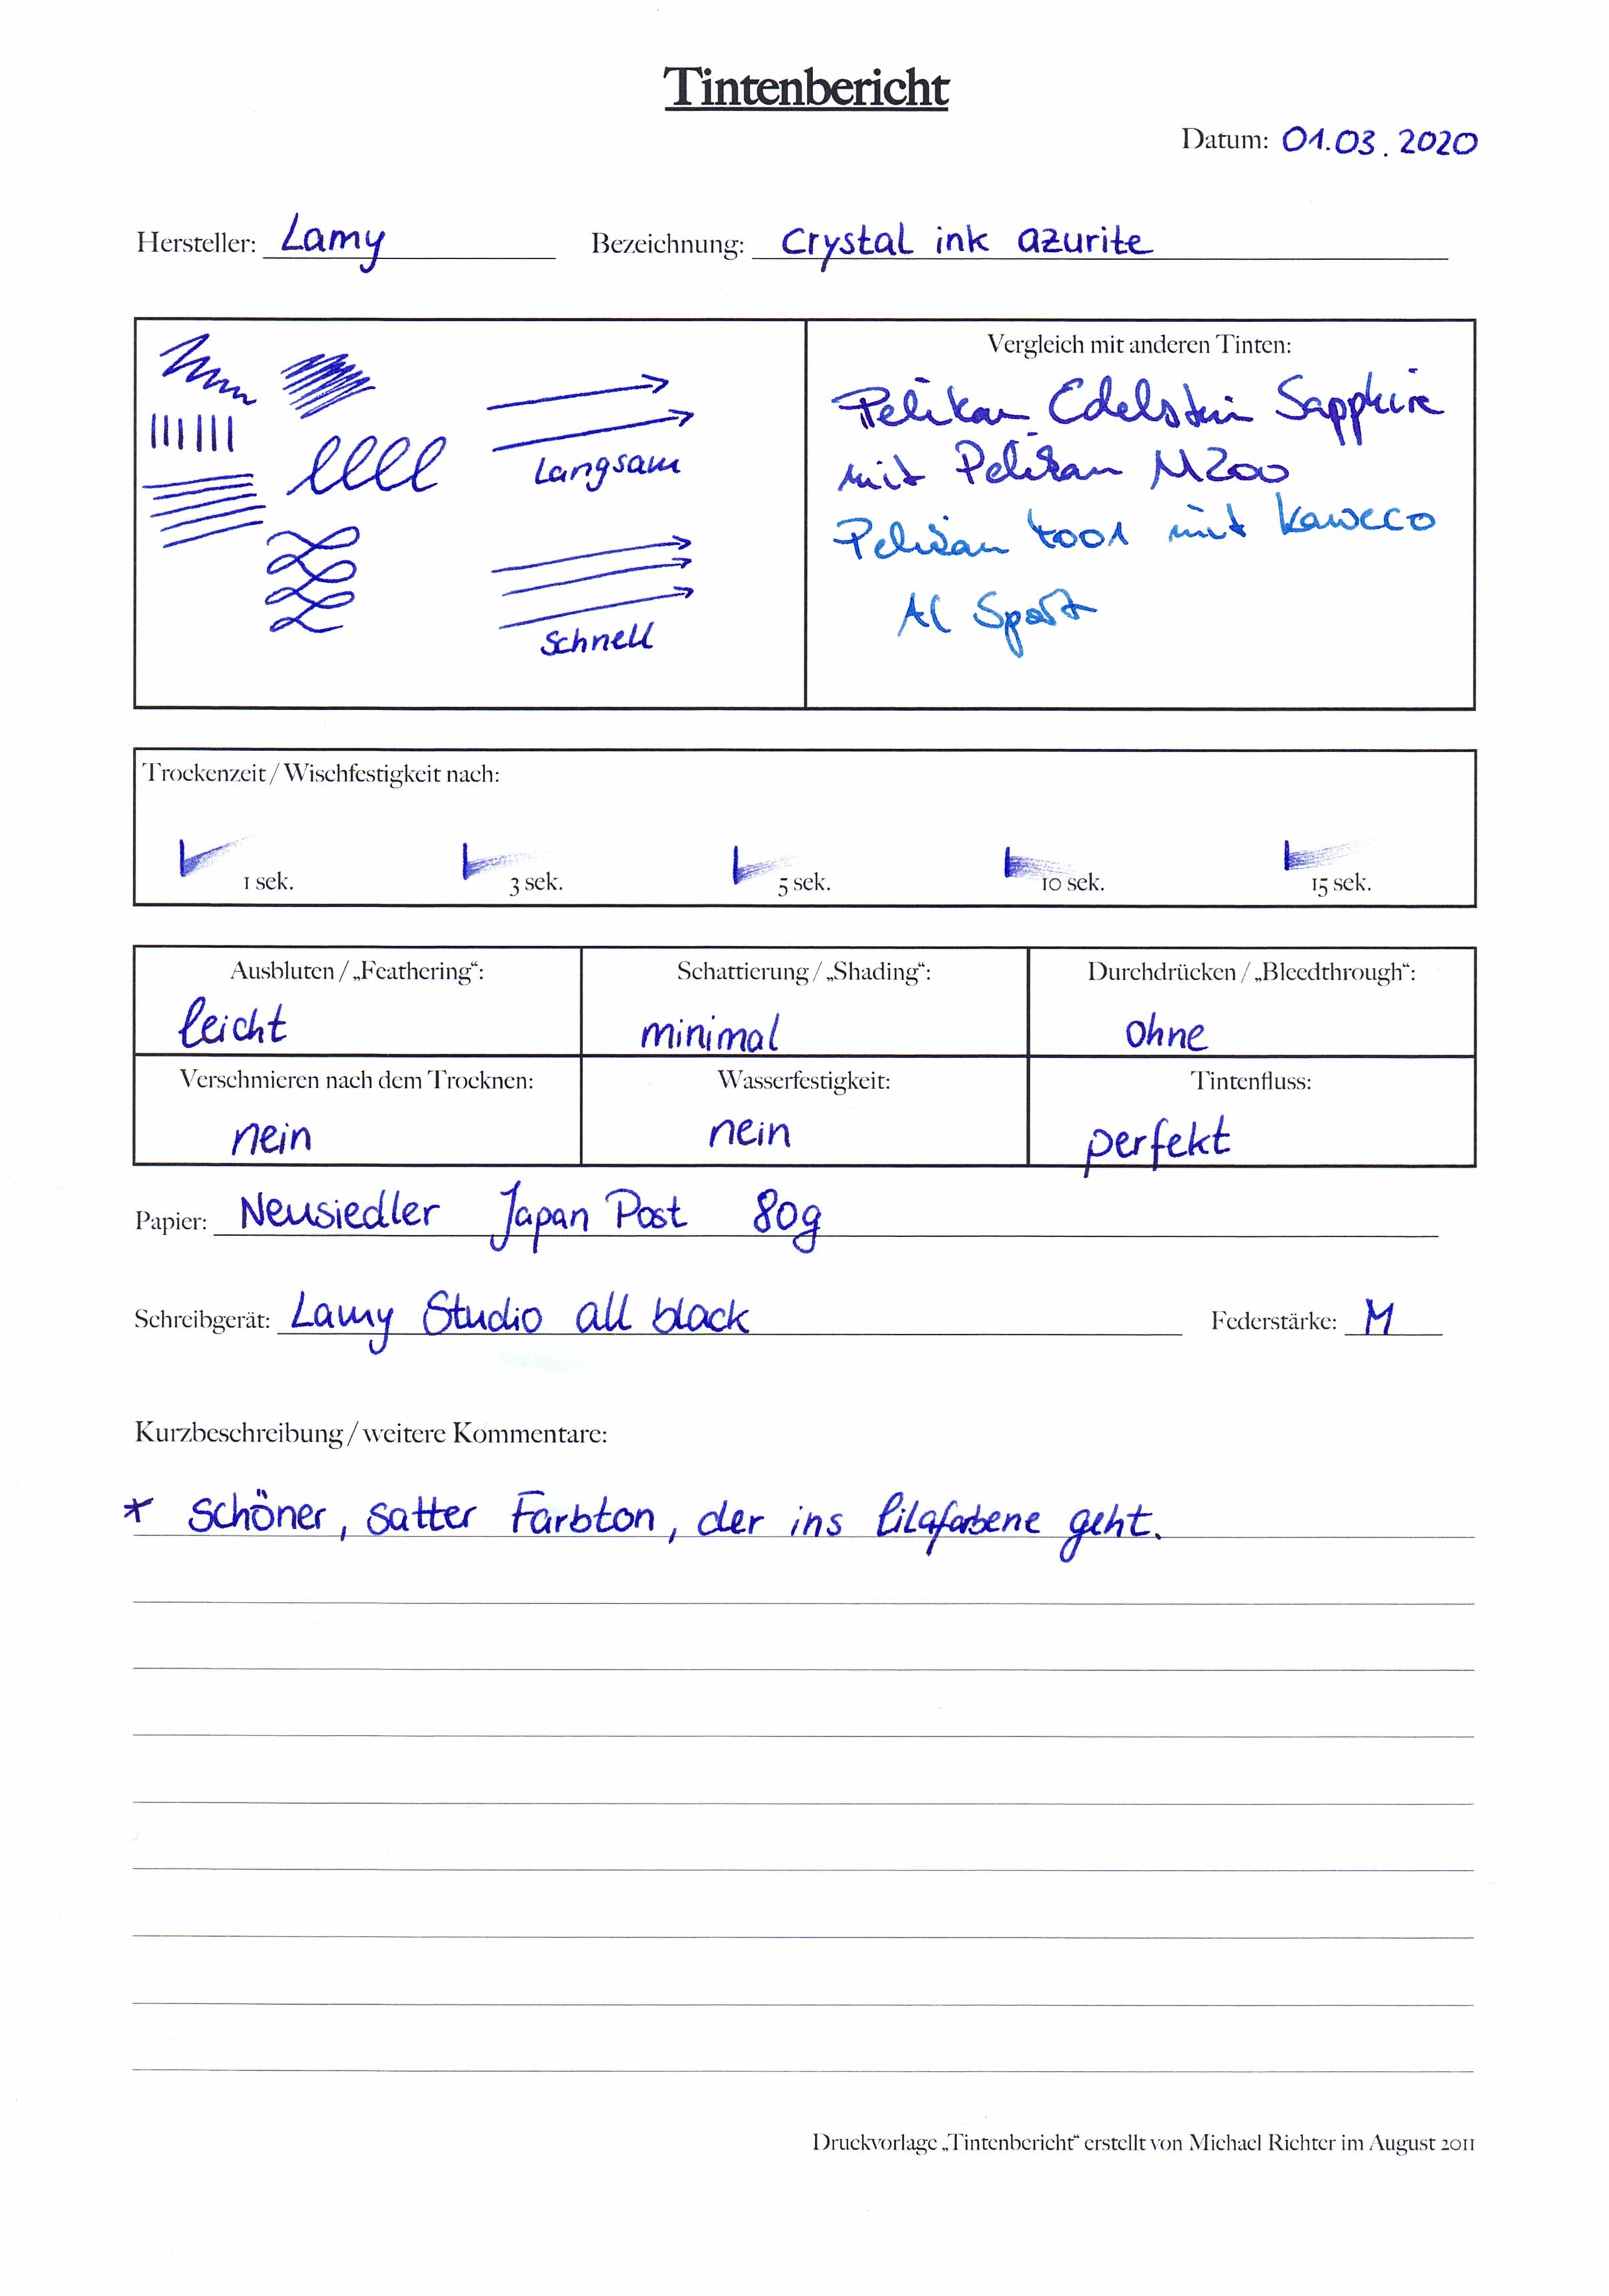 Tintenbericht
Datum: 01.03.2020
Hersteller: Lamy Bezeichnung: crystal ink azurite
Vergleich mit anderen Tinten:
Pelikan Edelstein Sapphire
mit Pelikan M200
Pelikan 4001 mit Kaweco
Al Sport
Langsam
Schnell
Trockenzeit / Wischfestigkeit nach:
1 sek. 3 sek. 5 sek. 10 sek. 15 sek.
Ausbluten / „Feathering“: Schattierung / „Shading“: Durchdrücken / „Bleedthrough“:
leicht minimal ohne
Verschmieren nach dem Trocknen: Wasserfestigkeit: Tintenfluss:
nein nein perfekt
Papier: Neusiedler Japan Post 80g
Schreibgerät: Lamy Studio all black Federstärke: M
Kurzbeschreibung / weitere Kommentare:
* schöner, satter Farbton, der ins lilafarbene geht.
Druckvorlage „Tintenbericht“ erstellt von Michael Richter im August 2011